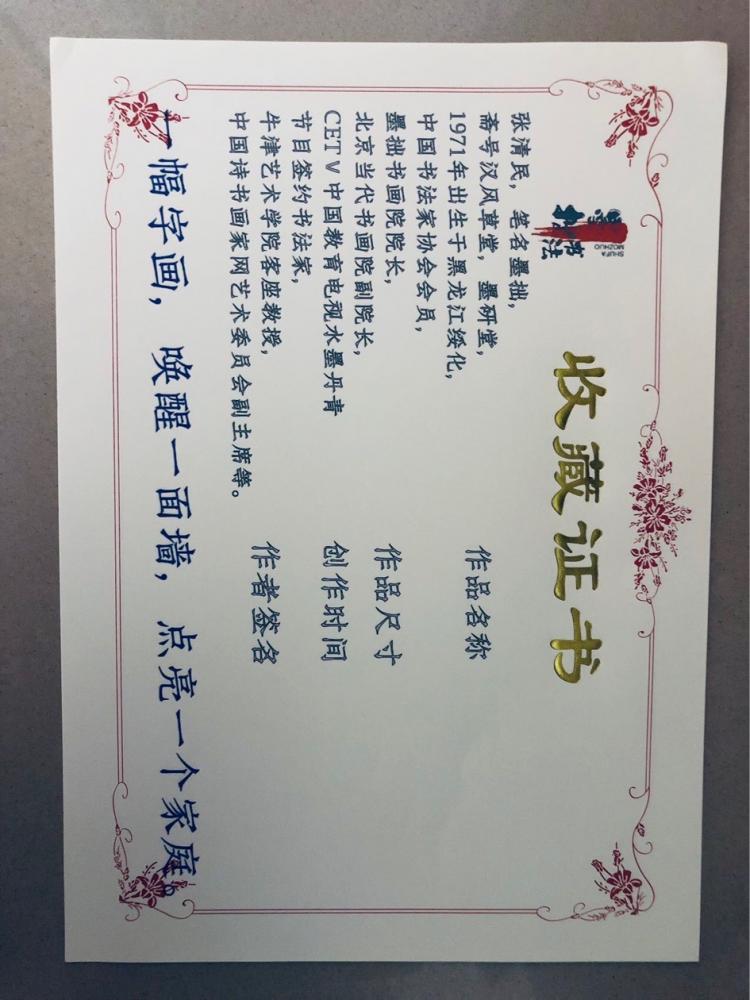 收藏证书
墨拙
书法
SHUFA
MOZHUO
张清民，笔名墨拙，
斋号汉风草堂，墨研堂，
1971年出生于黑龙江绥化，
中国书法家协会会员，
墨拙书画院院长，
北京当代书画院副院长，
CETV中国教育电视水墨丹青
节目签约书法家，
牛津艺术学院客座教授，
中国诗书画家网艺术委员会副主席等。
作品名称
作品尺寸
创作时间
作者签名
一幅字画，唤醒一面墙，点亮一个家庭。